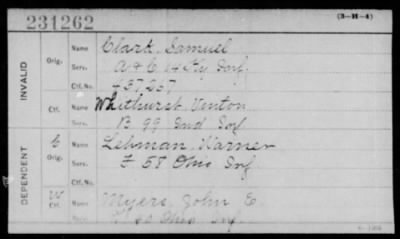 231262
(3-H-4)
INVALID
Orig.
Name Clark, Samuel
Serv. A & C 14 Ky Inf.
Ctf.No. 457257
Ctf.
Name Whithurst, Venton
Serv. B 99 Ind Inf
DEPENDENT
C
Orig.
Name Lehman, Warner
Serv. F 58 Ohio Inf
Ctf.No.
W
Ctf.
Name Myers, John C.
Serv. Ohio Inf